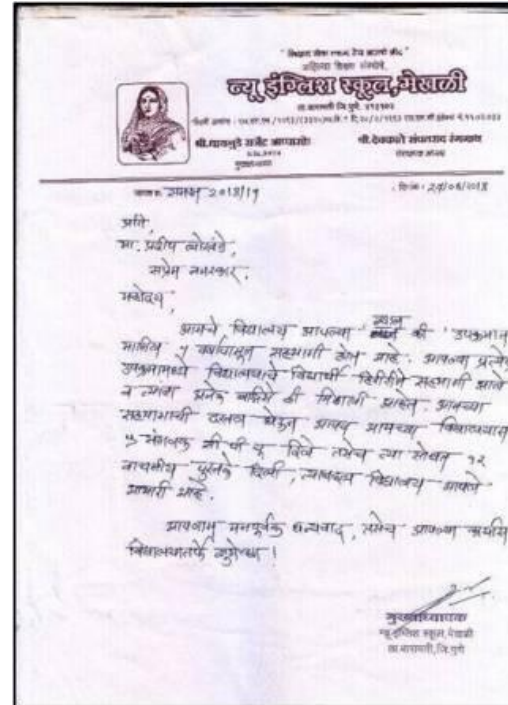 अहिल्या शिक्षण संस्थेचे,
न्यू इंग्लिश स्कूल, मेखळी
ता.बारामती जि.पुणे. ४१३१०२
मुख्याध्यापक
संस्थापक अध्यक्ष
जावक क्र. 2018/19
दिनांक :
प्रति,
मा. प्रदीप लोखंडे,
सप्रेम नमस्कार.
महोदय,
आमचे विद्यालय आपल्या की उपक्रमात
मागील ५ वर्षापासून सहभागी होत आहे. आपल्या प्रत्येक
उपक्रमामध्ये विद्यालयाचे विद्यार्थी हिरीरीने सहभागी झाले
व त्यांना अनेक बक्षिसे ही मिळाली आहेत. आमच्या
सहभागाची दखल घेऊन आपण आमच्या विद्यालयास
५ संगणक सी.पी.यू दिले तसेच त्या सोबत १२
वाचनीय पुस्तके दिली, त्याबद्दल विद्यालय आपले
आभारी आहे.
आपणास मनपूर्वक धन्यवाद, तसेच आपल्या कार्यास
विद्यालयातर्फे शुभेच्छा!
मुख्याध्यापक
न्यू इंग्लिश स्कूल, मेखळी
ता.बारामती, जि.पुणे